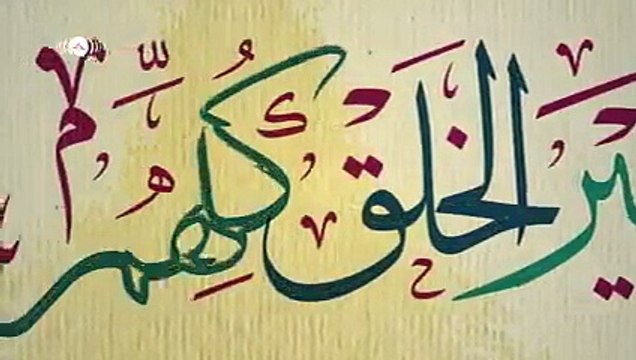 ير الخلق كلهم